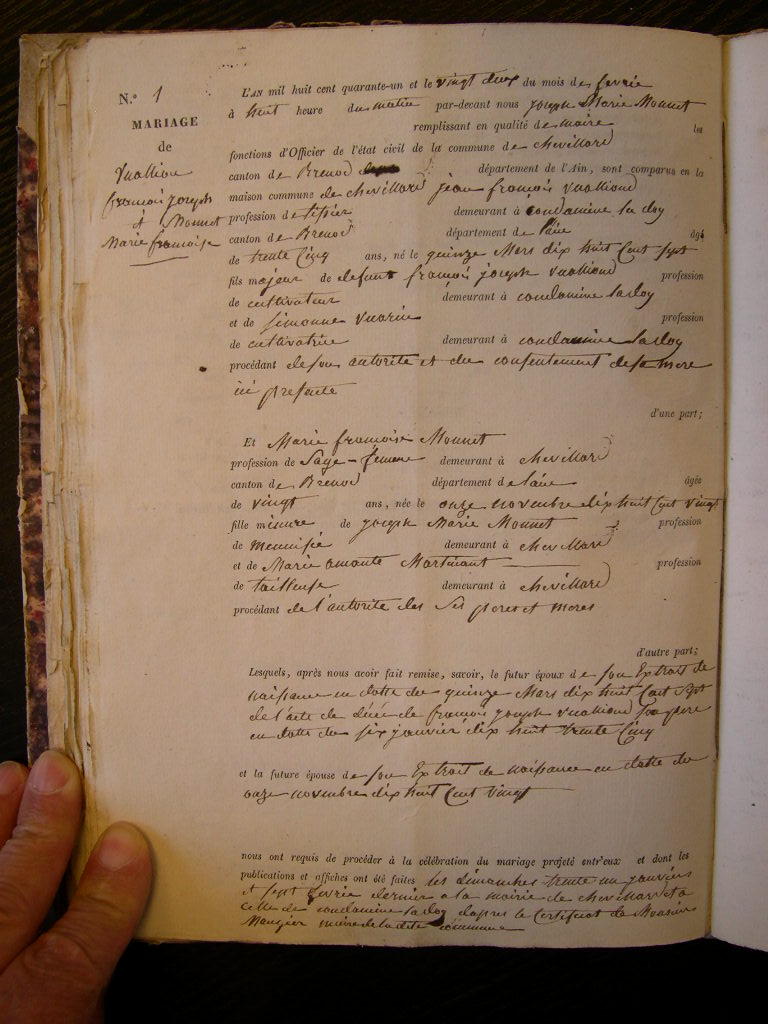 N.º 1
MARIAGE
de
Vuallion
françois joseph
et Monnet
Marie françoise
L'AN mil huit cent quarante-un et le vingt deux du mois de fevrie
à huit heure du matin par-devant nous joseph Marie Monnet
remplissant en qualité de maire les
fonctions d'Officier de l'état civil de la commune de chevillard
canton de Brenod département de l'Ain, sont comparus en la
maison commune de chevillard jean françois Vualliond
profession de tissier demeurant à condamine la doy
canton de Brenod département de l'ain âgé
de trente cinq ans, né le quinze Mars dix huit Cent sept
fils majeur de defunt françois joseph Vualliond profession
de cultivateur demeurant à condamine la doy
et de simonne Vuarin profession
de cultivatrice demeurant à condamine la doy
procédant de son autorité et du consentement de sa mere
ici presente
d'une part;
Et Marie françoise Monnet
profession de Sage-femme demeurant à chevillard
canton de Brenod département de l'ain âgée
de vingt ans, née le onze novembre dix huit Cent vingt
fille mineure de joseph Marie Monnet profession
de menuisié demeurant à chevillard
et de Marie amante Martinant profession
de tailleuse demeurant à chevillard
procédant de l'autorité des Ses peres et meres
d'autre part;
Lesquels, après nous avoir fait remise, savoir, le futur époux de son Extrait de
naissance en datte du quinze Mars dix huit Cent sept
de l'acte de décé de françois joseph Vualliond son pere
en datte du six janvier dix huit trente Cinq
et la future épouse de son Extrait de naissance en datte du
onze novembre dix huit Cent vingt
nous ont requis de procéder à la célébration du mariage projeté entr'eux et dont les
publications et affiches ont été faites les dimanches trente un janviers
et sept fevrie dernier a la mairie de chevillard et a
celle de condamine la doy dapres le Certificat de Monsieur
Maugier maire de la dite commune